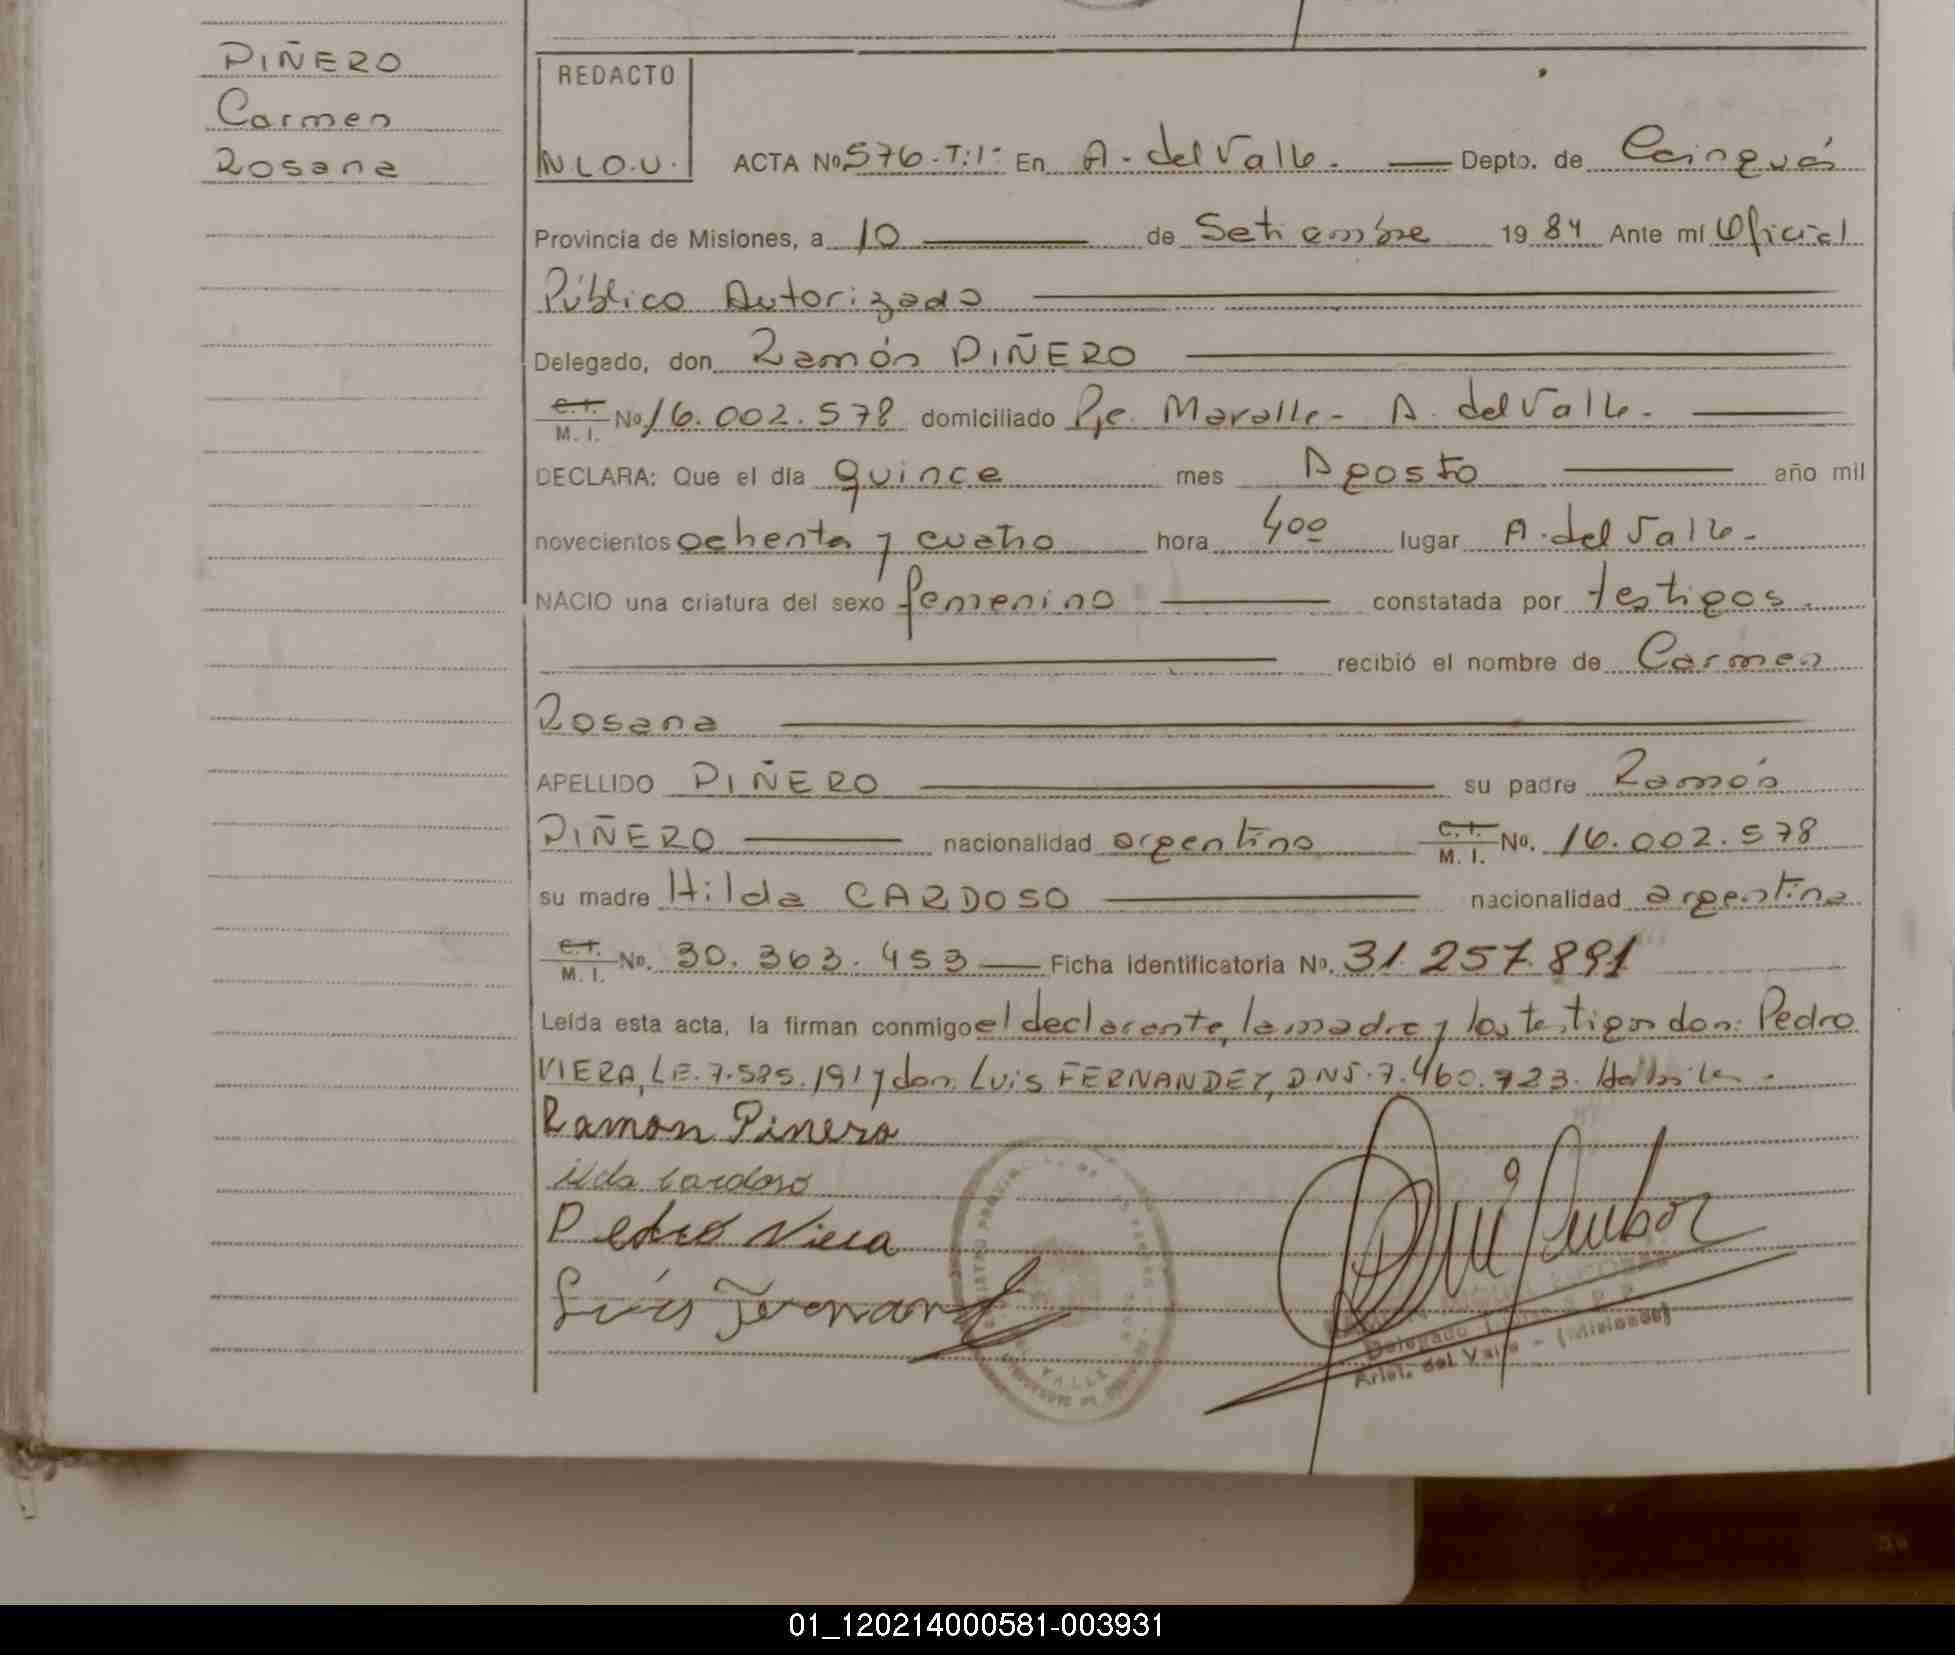 PIÑERO
Carmen
Rosana
REDACTO
N.L.O.U.
ACTA No 576-T:1- En A. del Valle. Depto. de Cainguás
Provincia de Misiones, a 10 de Setiembre 1984 Ante mi Oficial
Público Autorizado
Delegado, don Ramón PIÑERO
C.I. M. I. No 16.002.578 domiciliado Pje. Maralle - A. del Valle.
DECLARA: Que el día quince mes Agosto año mil
novecientos ochenta y cuatro hora 4oo lugar A. del Valle.
NACIO una criatura del sexo femenino constatada por testigos.
recibió el nombre de Carmen
Rosana
APELLIDO PIÑERO su padre Ramón
PIÑERO nacionalidad argentino C.I. M. I. No. 16.002.578
su madre Hilda CARDOSO nacionalidad argentina
C.I. M. I. No. 30.363.453 Ficha identificatoria No. 31.257.891
Leída esta acta, la firman conmigo el declarante, la madre y los testigos don: Pedro
VIERA, LE.7.585.191 y don: Luis FERNANDEZ, DNI.7.460.723. Habiles.
Ramon Pinero
ilda Cardoso
Pedro Viera
Luis Fernand
Delegado
Arist. del Valle - (Misiones)
VALLE
01_120214000581-003931